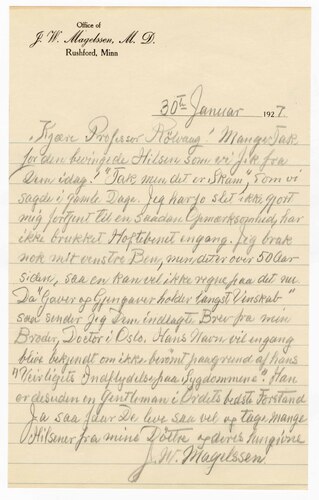 Office of
J. W. Magelssen, M. D.
Rushford, Minn
30th Januar 1927.
"Kjære Professor Rölvaag! Mange Tak
for den bevingede Hilsen som vi fik fra
Dem idag! "Tak men det er Skam", som vi
sagde i gamle Dage. Jeg har jo slet ikke gjort
mig fortjent til en saadan Opmærksomhed, har
ikke brukket Hoftebenet engang. Jeg brak
nok mit venstre Ben, men det er over 50 Aar
siden, saa en kan vel ikke regne paa det nu.
Da "Gaver og Gjengaver holder længst Venskab"
saa sender jeg Dem indlagte Brev fra min
Broder, Doctor i Oslo. Hans Navn vil engang
blive bekjendt om ikke berömt paagrund af hans
"Veirligets Indflydelse paa Sygdommene". Han
er desuden en Gentleman i Ordets bedste Forstand
Ja saa faar De leve saa vel og tage mange
Hilsener fra mine Döttre og deres
J. W. Magelssen